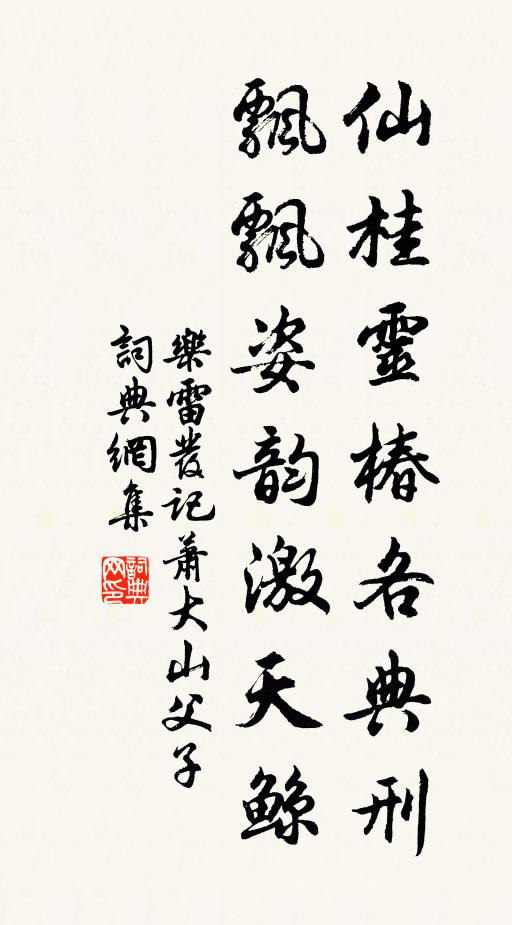 仙桂靈椿各典刑
飄飄姿韵激天鲸
樂雷發记蕭大山父子
詞典網集
詞典网印